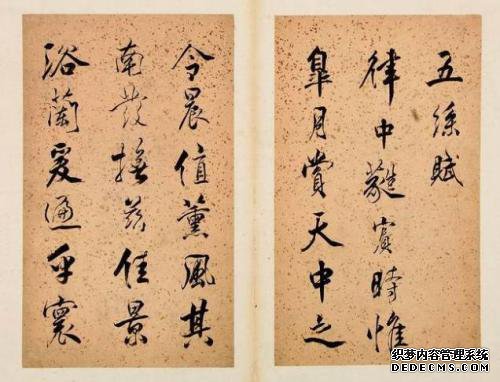 五絲賦
律中蕤賓時惟
皐月賞天中之
令晨值薰風其
南發撫茲佳景
浴蘭爰遍乎寰
织梦内容管理系统
DEDECMS.COM